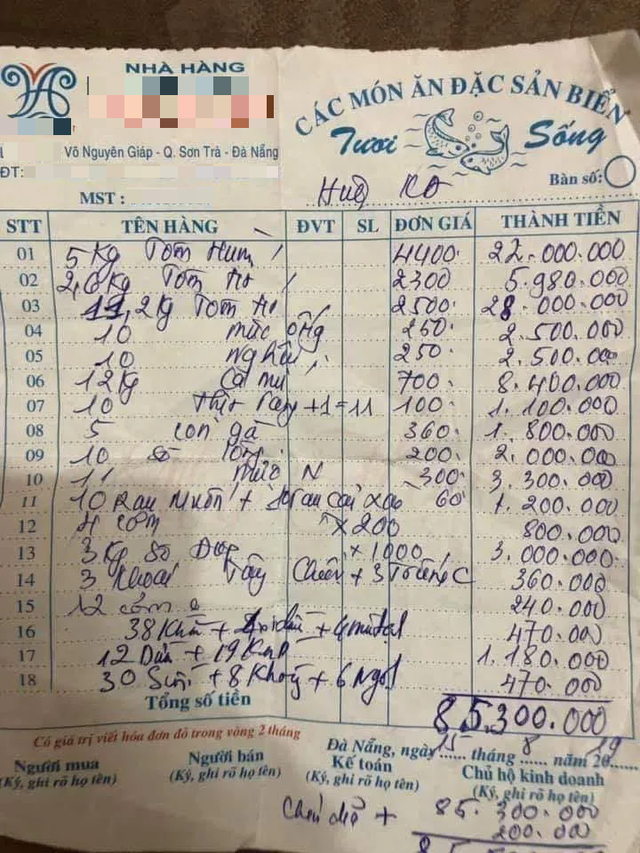 NHÀ HÀNG
Võ Nguyên Giáp - Q. Sơn Trà - Đà Nẵng
ĐT:
MST :
CÁC MÓN ĂN ĐẶC SẢN BIỂN
Tươi Sống
Bàn số:
STT TÊN HÀNG ĐVT SL ĐƠN GIÁ THÀNH TIỀN
01 5 Kg Tôm Hùm 4400 22.000.000
02 2,6 Kg Tôm 2300 5.980.000
03 11,2 Kg Tôm 2500 28.000.000
04 10 mực ống 250 2.500.000
05 10 nghêu 250 2.500.000
06 12 Kg Cá mú 700 8.400.000
07 10 Thịt +1=11 100 1.100.000
08 5 con gà 360 1.800.000
09 10 200 2.000.000
10 11 mực N 300 3.300.000
11 10 Rau Muốn + 10 rau cải xào 60 1.200.000
12 4 cơm x200 800.000
13 3 Kg Sò x1000 3.000.000
14 3 Khoai Tây Chiên + 3 Trứng C 360.000
15 12 cơm 240.000
16 38 Khăn + + 4 470.000
17 12 Dừa + 19 Ken 1.180.000
18 30 Suối + 8 + 6 Ngọt 470.000
Tổng số tiền 85.300.000
Có giá trị viết hóa đơn đỏ trong vòng 2 tháng
Đà Nẵng, ngày 15 tháng 8 năm 2019
Người mua Người bán Kế toán Chủ hộ kinh doanh
(Ký, ghi rõ họ tên) (Ký, ghi rõ họ tên) (Ký, ghi rõ họ tên) (Ký, ghi rõ họ tên)
+ 85.300.000
200.000